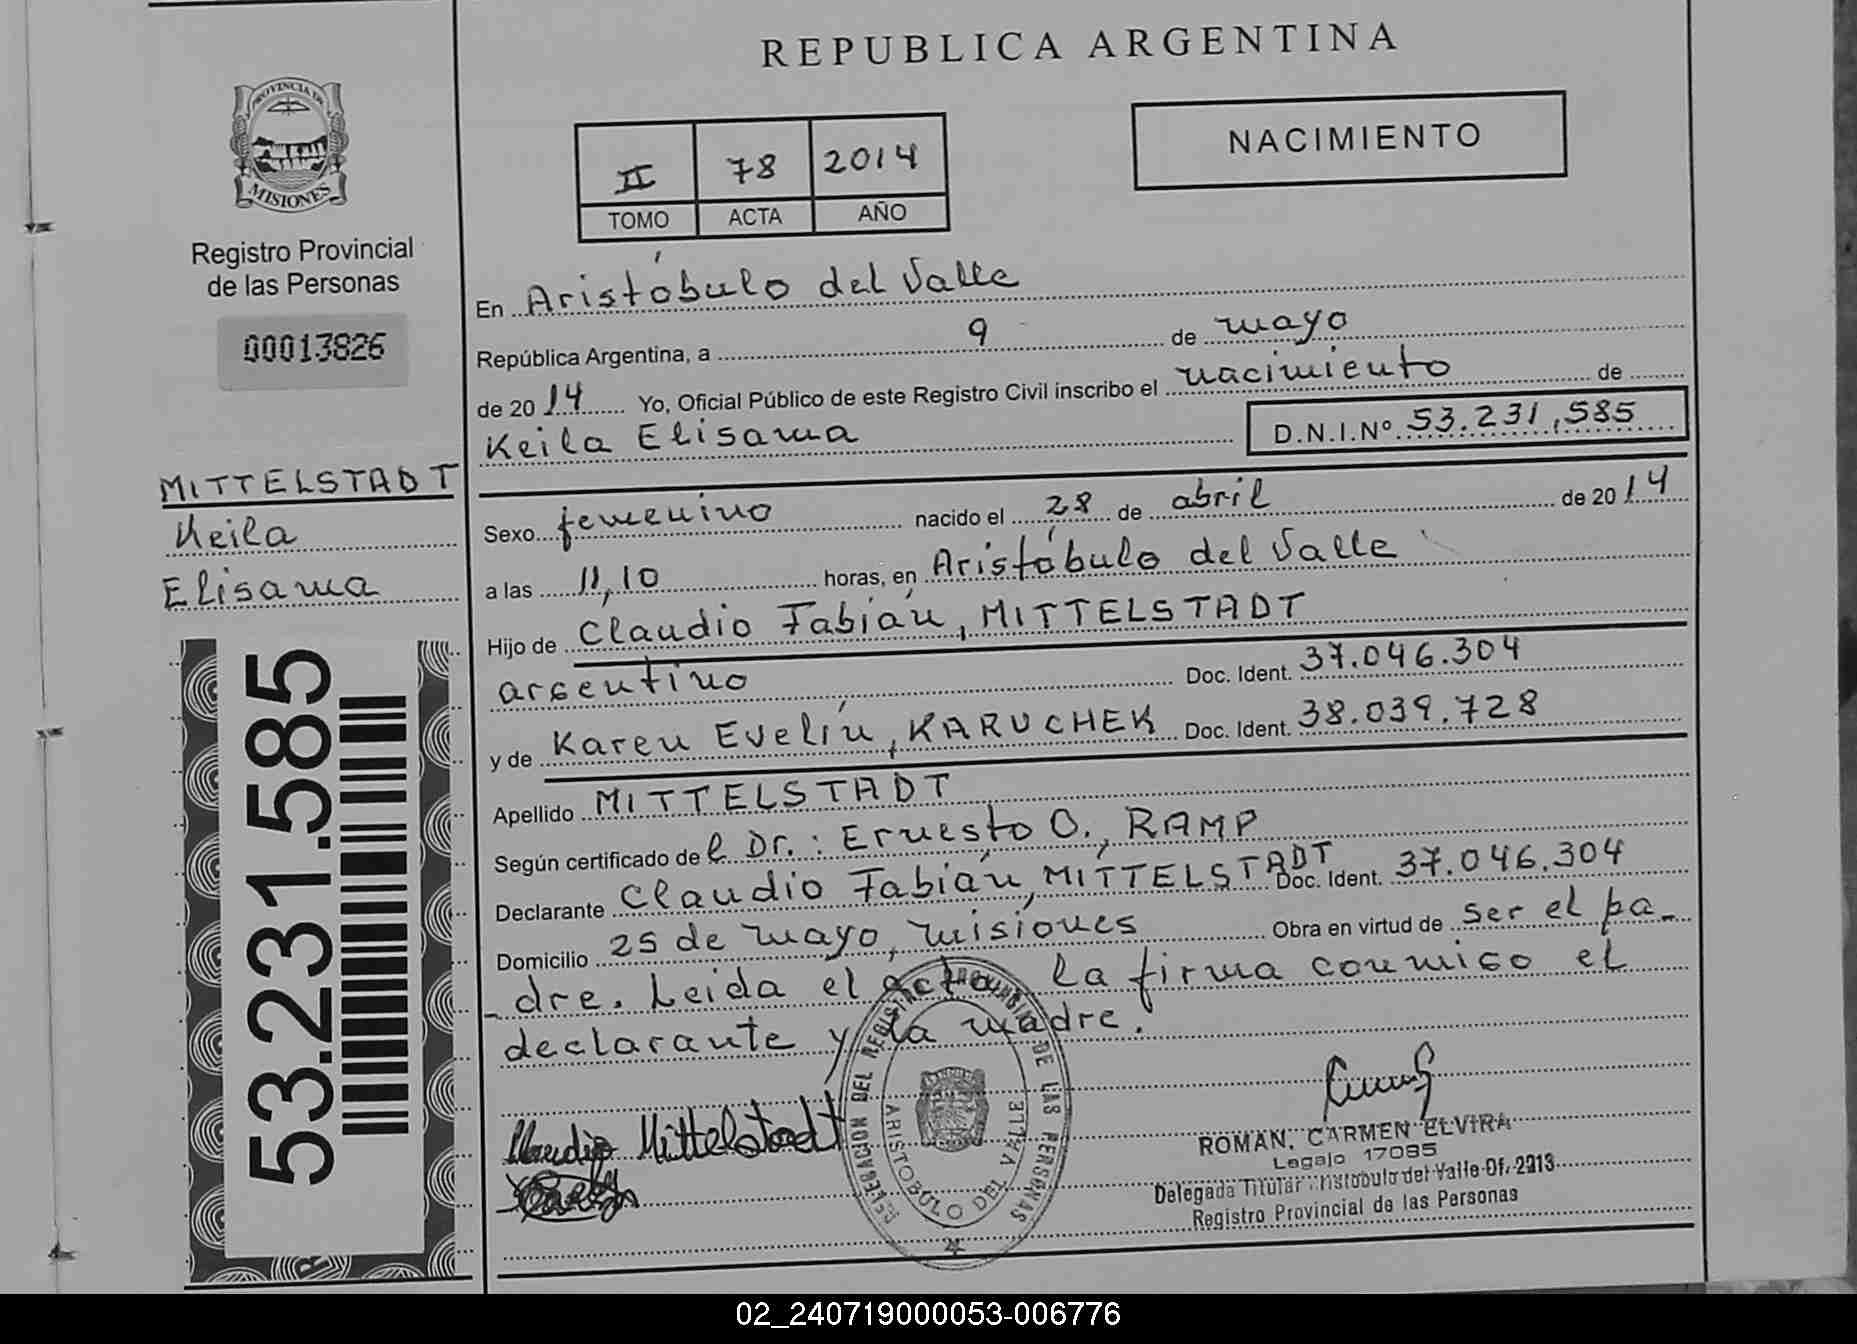 REPUBLICA ARGENTINA
PROVINCIA DE
MISIONES
Registro Provincial
de las Personas
00013826
II 78 2014
TOMO ACTA AÑO
NACIMIENTO
En Aristóbulo del Valle
República Argentina, a 9 de mayo
de 2014 Yo, Oficial Público de este Registro Civil inscribo el nacimiento de
Keila Elisama D.N.I.Nº 53.231.585
MITTELSTADT
Keila
Elisama
53.231.585
Sexo femenino nacido el 28 de abril de 2014
a las 11,10 horas, en Aristóbulo del Valle
Hijo de Claudio Fabián, MITTELSTADT
argentino Doc. Ident. 37.046.304
y de Karen Evelín, KARUCHEK Doc. Ident. 38.039.728
Apellido MITTELSTADT
Según certificado de l Dr.: Ernesto O., RAMP
Declarante Claudio Fabián, MITTELSTADT Doc. Ident. 37.046.304
Domicilio 25 de mayo, misiones Obra en virtud de ser el pa-
-dre. Leida el acta, la firma conmigo el
declarante y la madre.
Claudio Mittelstadt
DELEGACION DEL REGISTRO PROVINCIAL DE LAS PERSONAS
ARISTOBULO DEL VALLE
ROMAN, CARMEN ELVIRA
Legajo 17085
Delegada Titular Aristobulo del Valle Of. 2213
Registro Provincial de las Personas
02_240719000053-006776